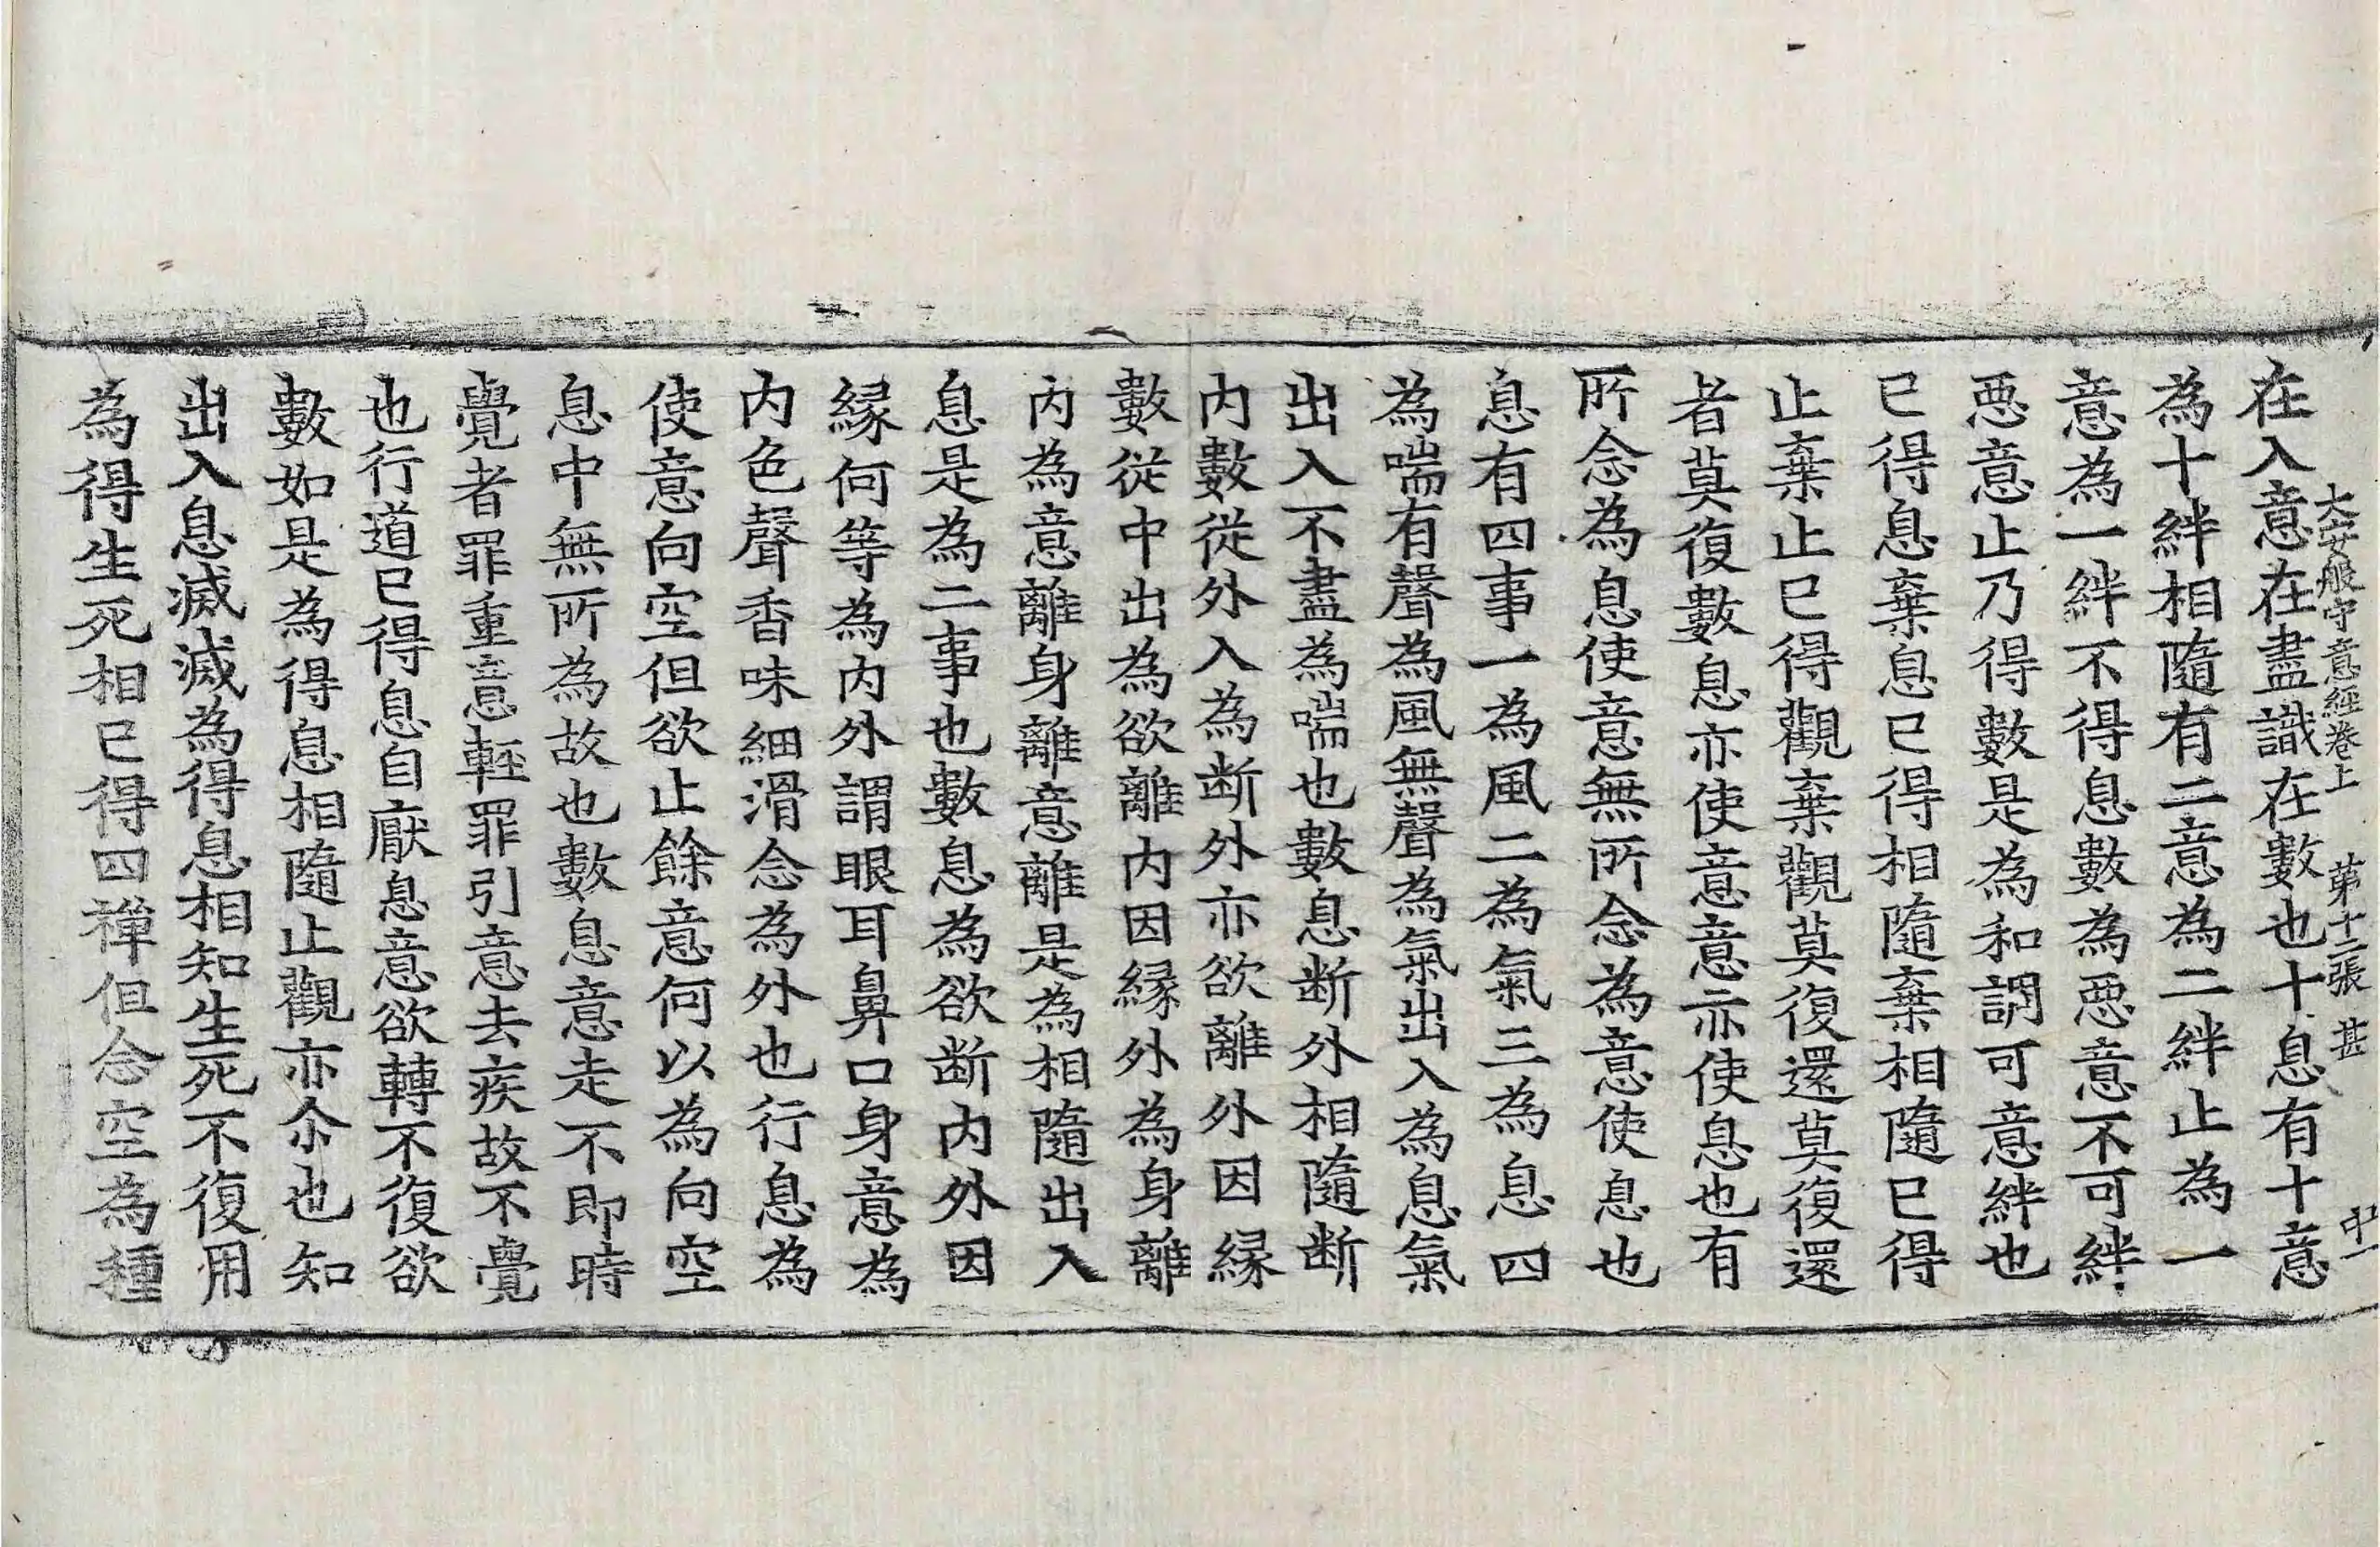 大安般守意經卷上 第十二張 甚
在入意在盡識在數也十息有十意
為十絆相隨有二意為二絆止為一
意為一絆不得息數為惡意不可絆
惡意止乃得數是為和調可意絆也
已得息棄息已得相隨棄相隨已得
止棄止已得觀棄觀莫復還莫復還
者莫復數息亦使意意亦使息也有
所念為息使意無所念為意使息也
息有四事一為風二為氣三為息四
為喘有聲為風無聲為氣出入為息氣
出入不盡為喘也數息断外相隨断
内數從外入為断外亦欲離外因縁
數從中出為欲離内因縁外為身離
内為意離身離意離是為相隨出入
息是為二事也數息為欲断内外因
縁何等為内外謂眼耳鼻口身意為
内色聲香味細滑念為外也行息為
使意向空但欲止餘意何以為向空
息中無所為故也數息意走不即時
覺者罪重意輕罪引意去疾故不覺
也行道已得息自厭息意欲轉不復欲
數如是為得息相隨止觀亦尒也知
出入息滅滅為得息相知生死不復用
為得生死相已得四禪但念空為種